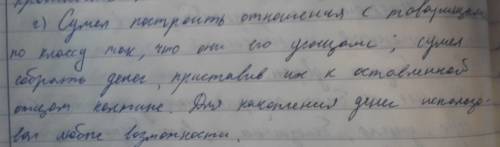 г) Сумел построить отношения с товарищами
по классу так, что они его угощали; сумел
собрать денег, приставив их к оставленной
отцом полтине. Для накопления денег использо-
вал любые возможности.